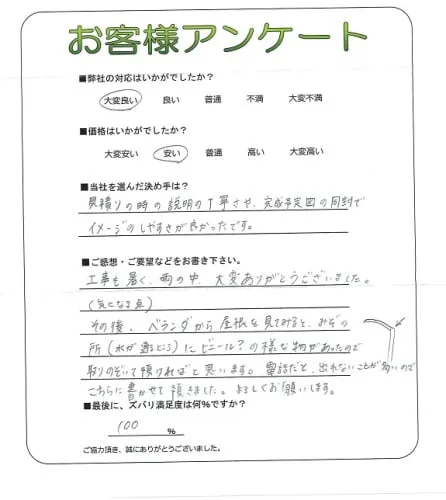 お客様アンケート
■弊社の対応はいかがでしたか?
大変良い 良い 普通 不満 大変不満
■価格はいかがでしたか?
大変安い 安い 普通 高い 大変高い
■当社を選んだ決め手は?
見積りの時の説明の丁寧さや、完成予定図の同封で
イメージのしやすさが良かったです。
■ご感想・ご要望などをお書き下さい。
工事も暑く、雨の中、大変ありがとうございました。
(気になる点)
その後、ベランダから屋根を見てみると、みぞの
所(水が通るところ)にビニール?の様な物があったので
取りのぞいて頂ければと思います。電話だと、出れないことが多いので
こちらに書かせて頂きました。よろしくお願いします。
■最後に、ズバリ満足度は何%ですか?
100 %
ご協力頂き、誠にありがとうございました。